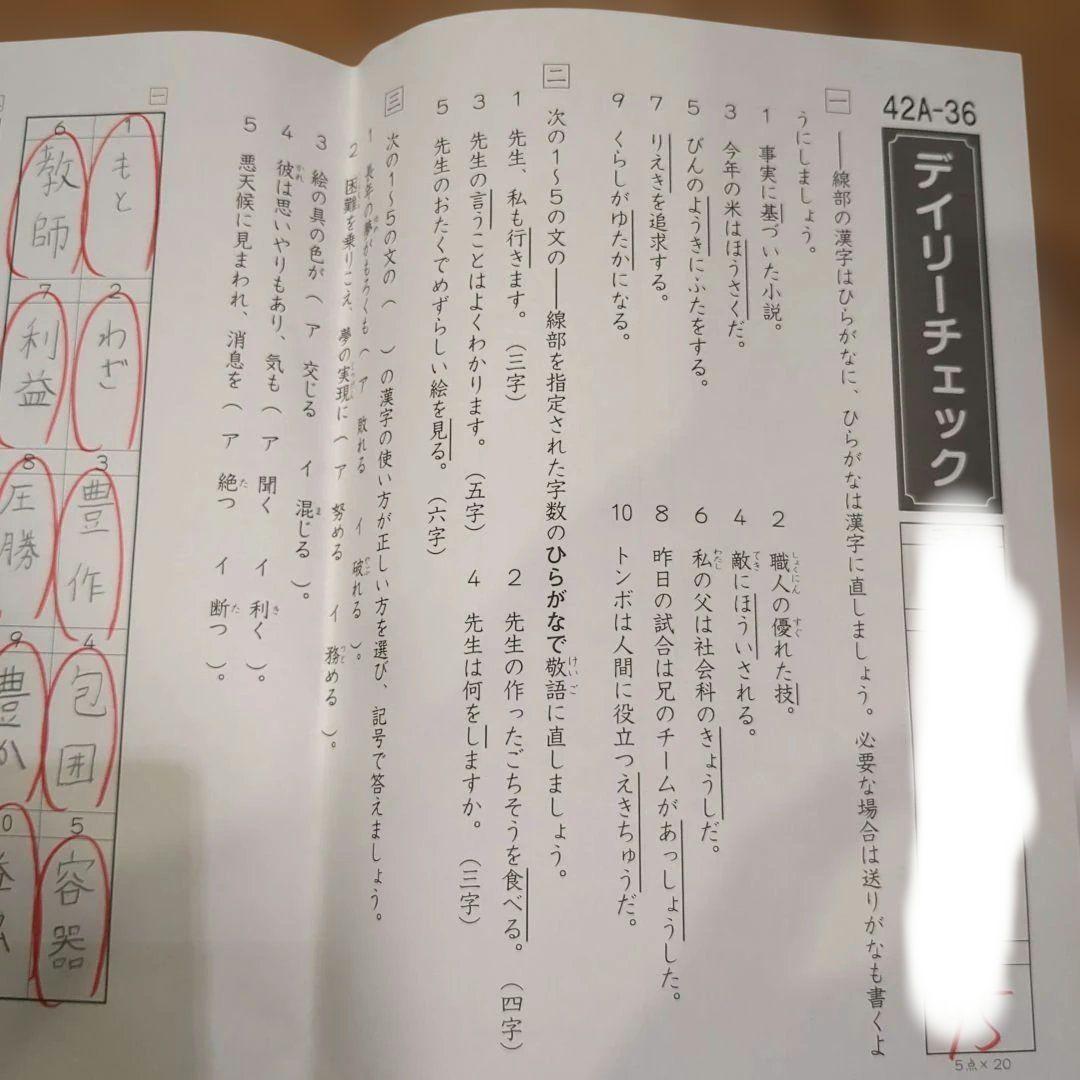 42A-36
デイリーチェック
一 ――線部の漢字はひらがなに、ひらがなは漢字に直しましょう。必要な場合は送りがなも書くよ
うにしましょう。
1 事実に基づいた小説。
2 職人の優れた技。
3 今年の米はほうさくだ。
4 敵にほういされる。
5 びんのようきにふたをする。
6 私の父は社会科のきょうしだ。
7 りえきを追求する。
8 昨日の試合は兄のチームがあっしょうした。
9 くらしがゆたかになる。
10 トンボは人間に役立つえきちゅうだ。
二 次の1〜5の文の――線部を指定された字数のひらがなで敬語に直しましょう。
1 先生、私も行きます。（三字）
2 先生の作ったごちそうを食べる。（四字）
3 先生の言うことはよくわかります。（五字）
4 先生は何をしますか。（三字）
5 先生のおたくでめずらしい絵を見る。（六字）
三 次の1〜5の文の（ ）の漢字の使い方が正しい方を選び、記号で答えましょう。
1 長年の夢がもろくも（ア 敗れる イ 破れる）。
2 困難を乗りこえ、夢の実現に（ア 努める イ 務める）。
3 絵の具の色が（ア 交じる イ 混じる）。
4 彼は思いやりもあり、気も（ア 聞く イ 利く）。
5 悪天候に見まわれ、消息を（ア 絶つ イ 断つ）。
5点×20
75
一
1 もと
2 わざ
3 豊作
4 包囲
5 容器
6 教師
7 利益
8 圧勝
9 豊か